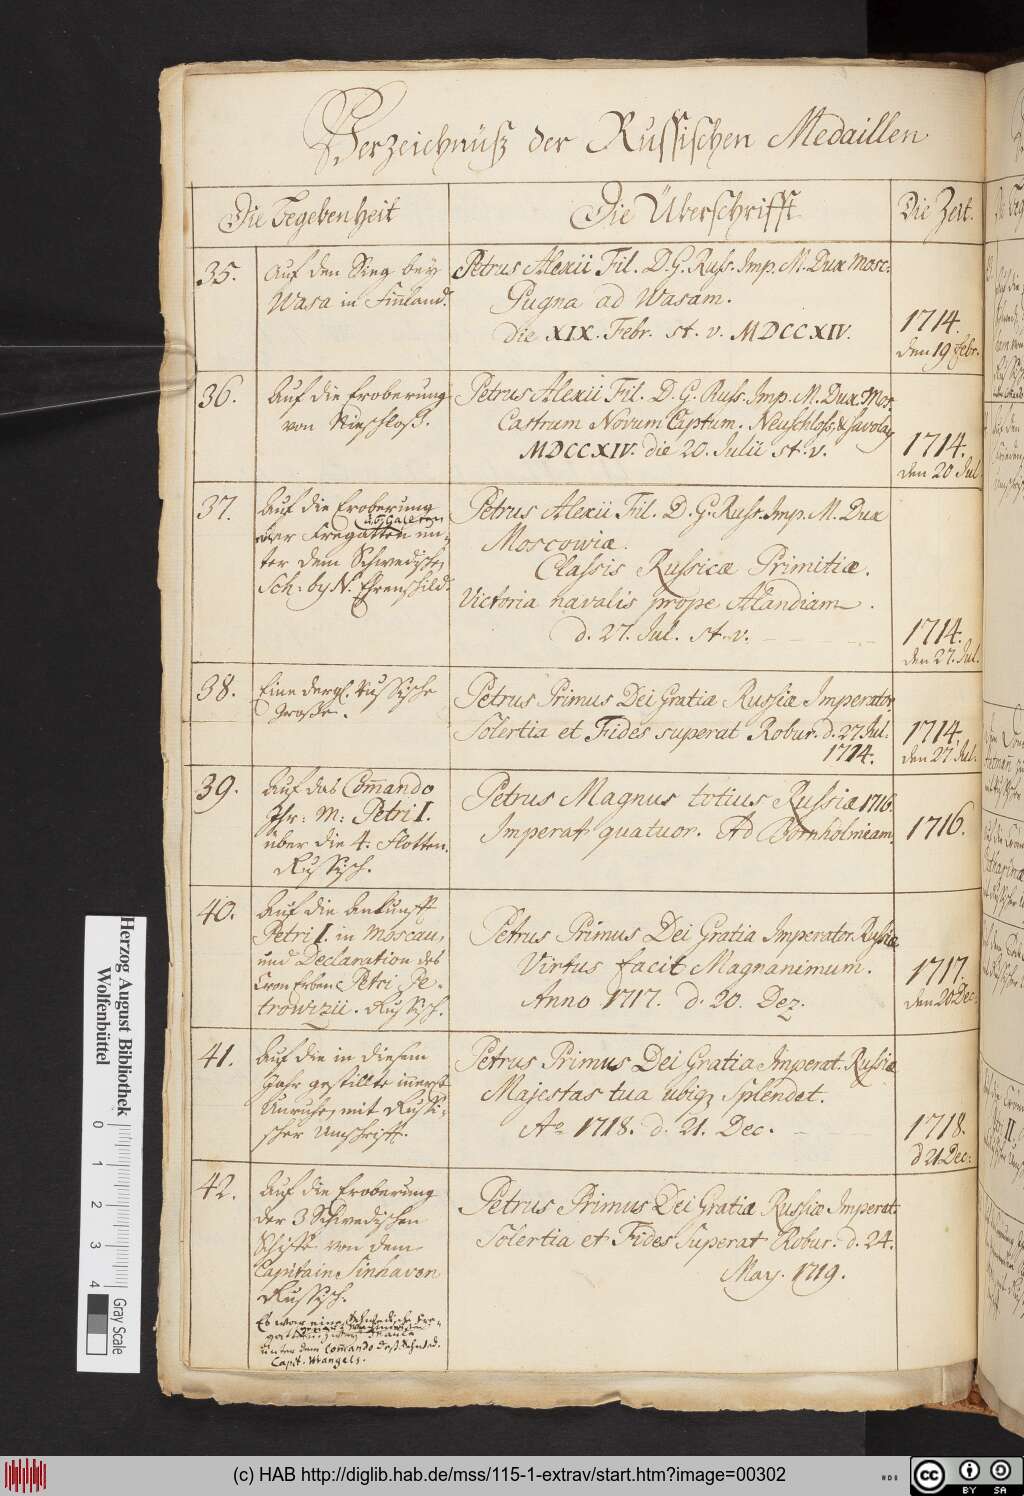 Verzeichnüß der Russischen Medaillen
Die Begebenheit
Die Überschrifft
Die Zeit.
35.
Auf den Sieg bey
Wasa in Finland.
Petrus Alexii Fil. D. G. Russ. Imp. M. Dux Mosc.
Pugna ad Wasam.
Die XIX. Febr. st. v. MDCCXIV.
1714.
den 19 Febr.
36.
Auf die Eroberung
von Nieschloß.
Petrus Alexii Fil. D. G. Russ. Imp. M. Dux Mos.
Castrum Novum Captum. Neuschloss, & Savolax
MDCCXIV. die 20. Julii st. v.
1714.
den 20 Jul.
37.
Auf die Eroberung
u. 6. Galeren
der Fregatten un-
ter dem Schwedisch.
Sch: by N. Ehrenschild.
Petrus Alexii Fil. D. G. Russ. Imp. M. Dux
Moscowiæ.
Classis Russicæ Primitiæ.
Victoria navalis prope Alandiam.
d. 27. Jul. st. v.
1714.
den 27. Jul.
38.
Eine dergl. Russische
Große.
Petrus Primus Dei Gratiæ Russiæ Imperator
Solertia et Fides superat Robur. d. 27 Jul.
1714.
1714.
den 27 Jul.
39.
Auf das Com̄ando
Ihr: M: Petri I.
über die 4. Flotten.
Russisch.
Petrus Magnus totius Russiæ 1716.
Imperat quatuor. Ad Bornholmeam.
1716.
40.
Auf die Ankunfft
Petri I. in Moscau,
und Declaration des
Cron Erben Petri Pe-
trowizii. Russisch.
Petrus Primus Dei Gratia Imperator Russiæ
Virtus facit Magnanimum.
Anno 1717. d. 20. Dez.
1717.
den 20 Dec.
41.
Auf die in diesem
Jahr gestillte innerl.
Unruhe, mit Russi-
scher Umschrifft.
Petrus Primus Dei Gratia Imperat. Russiæ
Majestas tua ubiq, Splendet.
Aō 1718. d. 21. Dec.
1718.
d 21 Dec:
42.
Auf die Eroberung
der 3 Schwedischen
Schiffe von dem
Capitaine Sinhaven
Russisch.
Es war eine Schwedische Fre-
gatte
unter dem Com̄ando des Schwed.
Capit. Wrangels.
Petrus Primus Dei Gratiæ Russiæ Imperat.
Solertia et Fides Superat Robur. d. 24.
May. 1719.
Herzog August Bibliothek
Wolfenbüttel
0 1 2 3 4
Gray Scale
(c) HAB http://diglib.hab.de/mss/115-1-extrav/start.htm?image=00302
cc BY SA